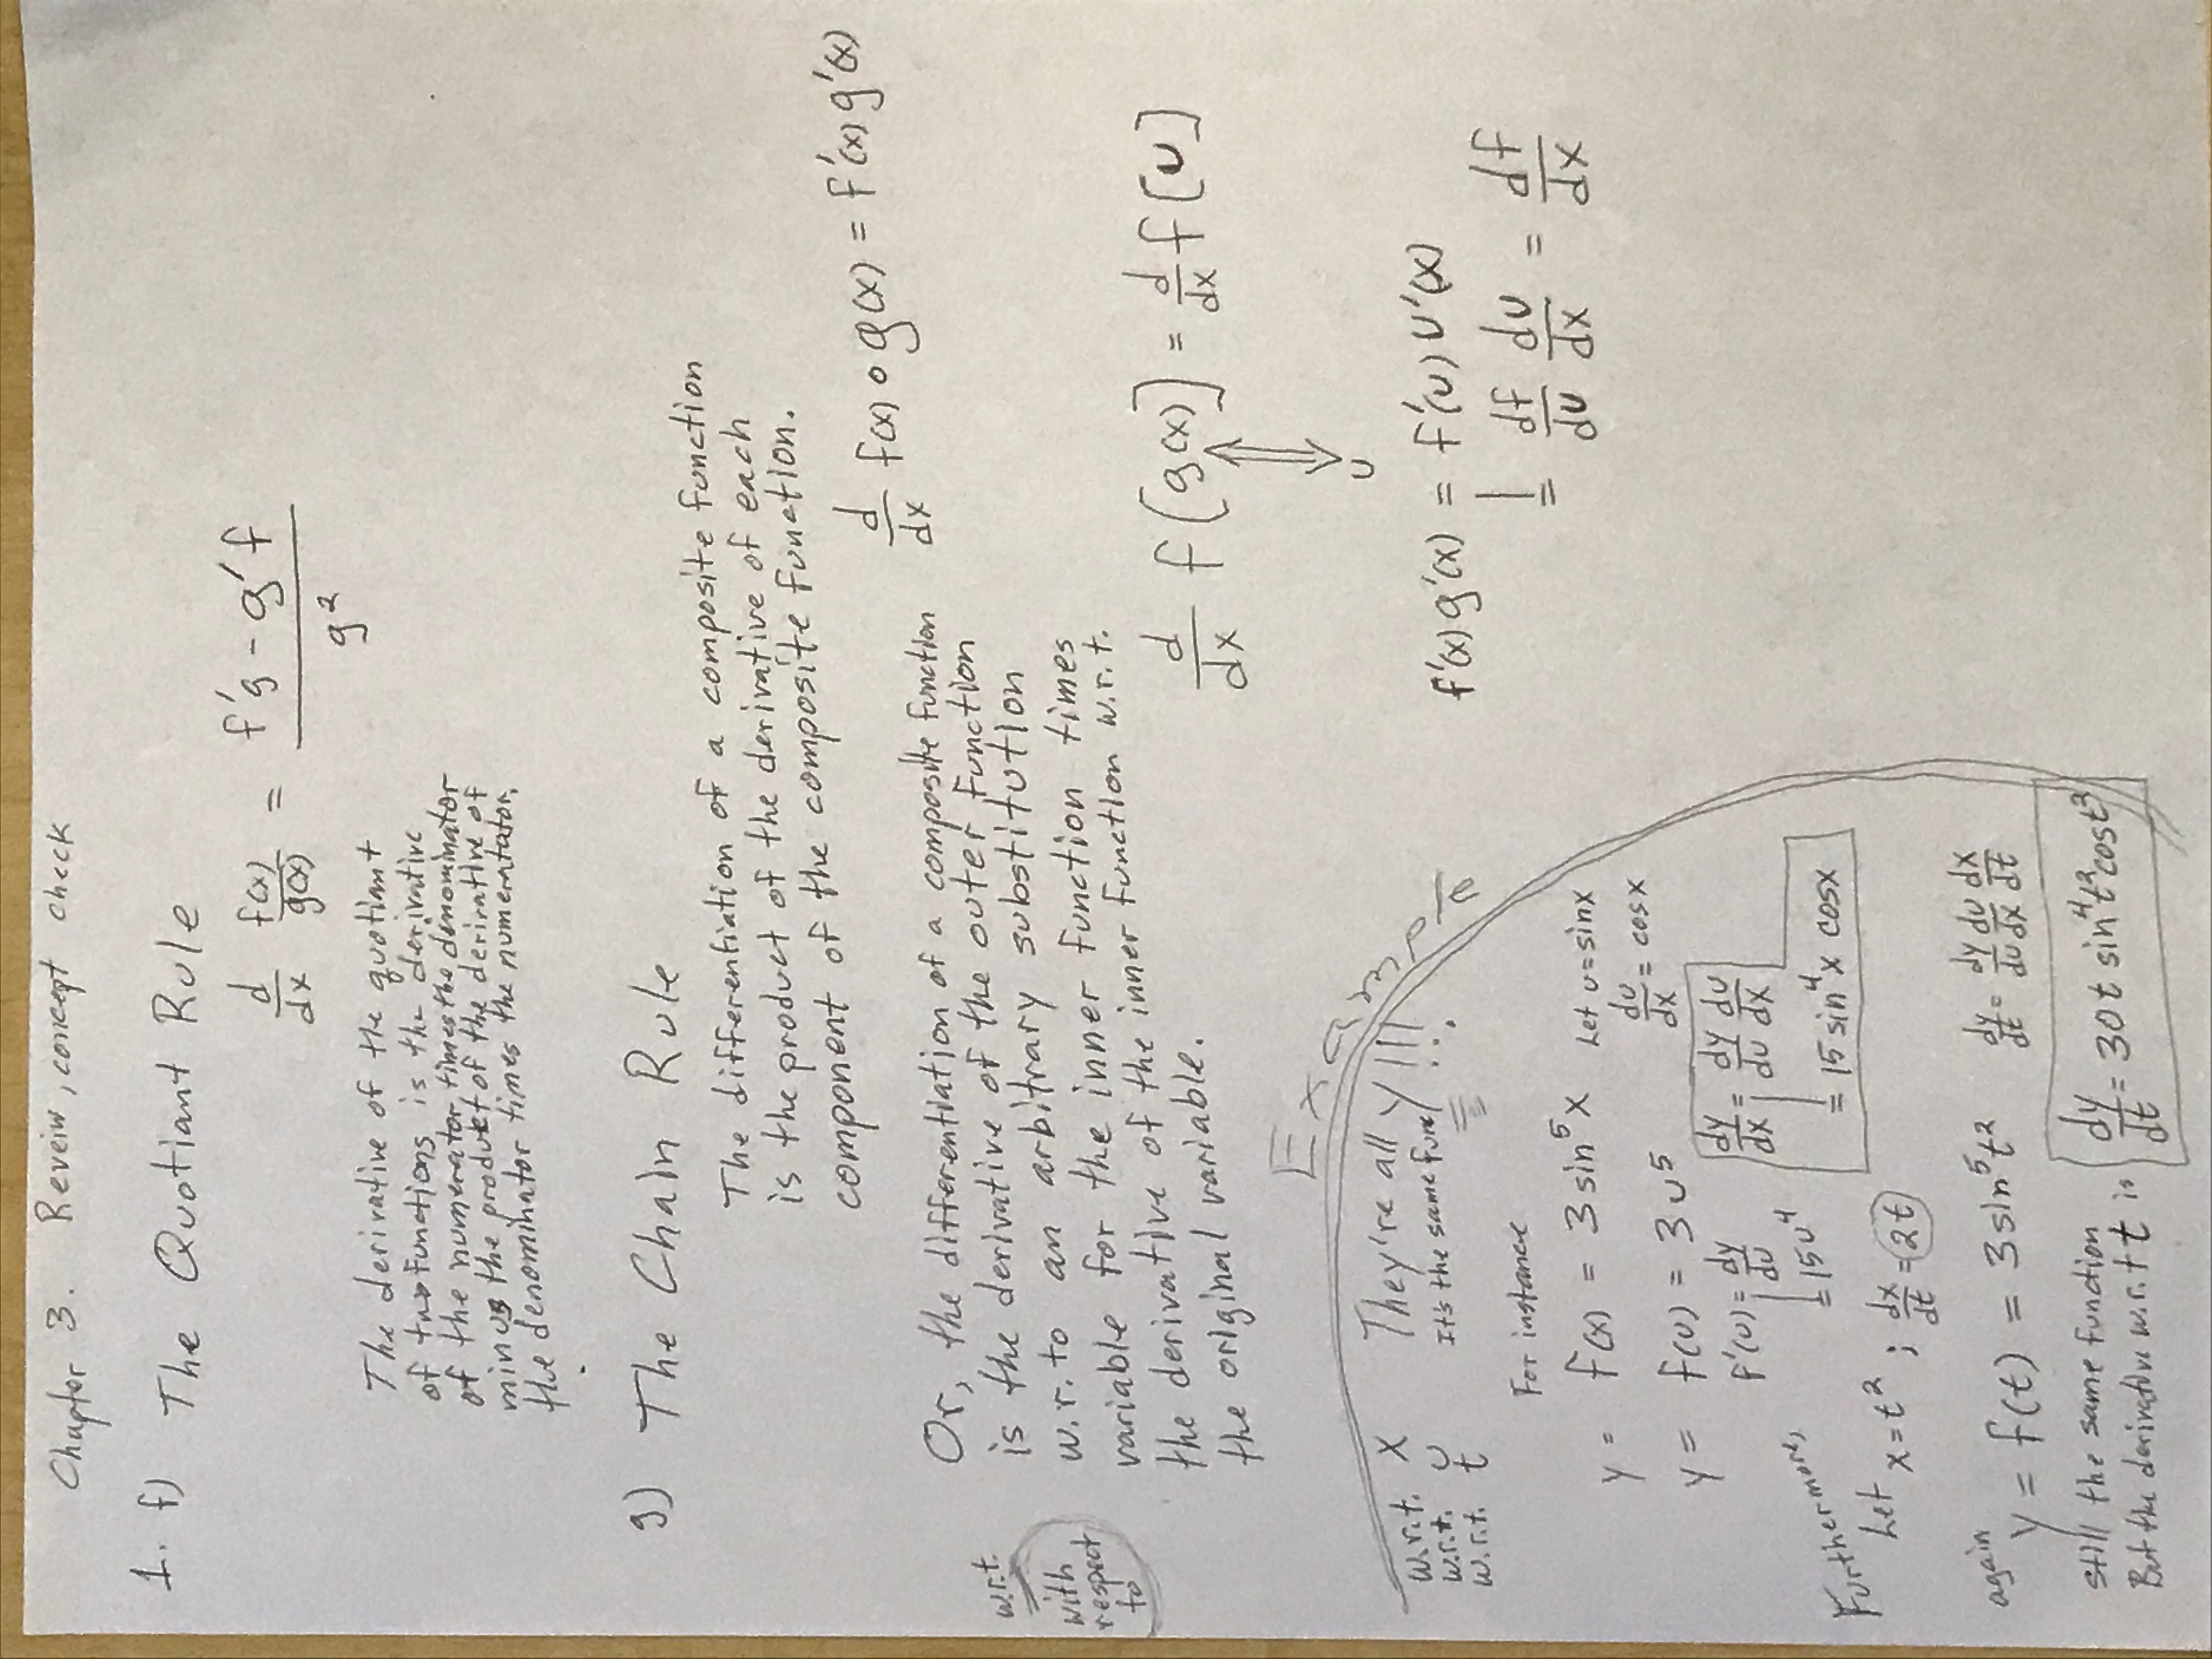 Chapter 3. Reveiw, concept check
1. f) The Quotiant Rule
d/dx f(x)/g(x) = (f'g - g'f)/g²
The derivative of the quotiant
of two functions is the derivative
of the numerator times the denominator
minus the product of the derivative of
the denominator times the numeratator.
g) The Chain Rule
The differentiation of a composite function
is the product of the derivative of each
component of the composite function.
d/dx f(x) ∘ g(x) = f'(x) g'(x)
Or, the differentiation of a composite function
is the derivative of the outer function
w.r. to an arbitrary substitution
variable for the inner function times
the derivative of the inner function w.r.t.
the original variable.
w.r.t.
with
respect
to
d/dx f[g(x)] = d/dx f[u]
u
f'(x) g'(x) = f'(u) u'(x)
= df/du du/dx = df/dx
Example
w.r.t. x They're all y!!!
w.r.t. u It's the same func
w.r.t. t
For instance
y = f(x) = 3 sin⁵x Let u = sinx
du/dx = cosx
y = f(u) = 3u⁵
f'(u) = dy/du
= 15u⁴
dy/dx = dy/du du/dx
= 15 sin⁴x cosx
Furthermore,
Let x = t² ; dx/dt = 2t
again
y = f(t) = 3 sin⁵t² dy/dt = dy/du du/dx dx/dt
still the same function
But the derivative w.r.t t is dy/dt = 30t sin⁴t² cost²